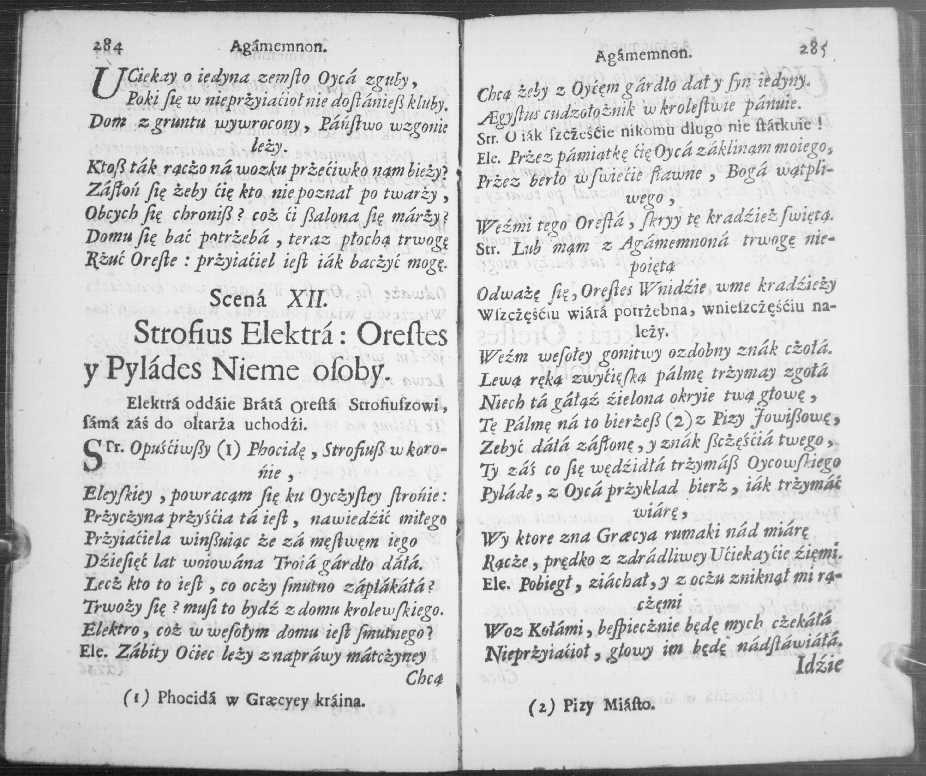 284 Agámemnon.
UCiekay o iedyna zemſto Oycá zguby,
Poki ſię w nieprżyiaćioł nie doſtánieß kluby.
Dom z gruntu wywrocony, Páńſtwo wzgonie
leży.
Ktoß ták rączo ná wozku przećiwko nąm bieży?
Záſłoń ſię żeby ćię kto nie poznał po twarży,
Obcych ſię chroniß? coż ći ßalona ſię márży?
Domu ſię bać potrżebá, teraz płochą trwogę
Rżuć Oreſte: prżyiaćiel ieſt iák baczyć mogę.
Scená XII.
Strofius Elektrá: Oreſtes
y Pyládes Nieme oſoby.
Elektrá oddáie Brátá Oreſtá Strofiuſzowi,
ſámá záś do ołtarża uchodźi.
STr. Opuśćiwßy (1) Phocidę, Strofiuß w koro-
nie,
Eleyſkiey, powracąm ſię ku Oyczyſtey ſtronie:
Prżyczyna prżyśćia tá ieſt, nawiedźić miłego
Prżyiaćiela winßuiąc że zá męſtwęm iego
Dźieſięć lat woiowána Troiá gárdło dáłá.
Lecż kto to ieſt, co oczy ſmutno zápłákáłá?
Trwoży ſię? muſi to bydź z domu krolewſkiego.
Elektro, coż w weſołym domu ieſt ſmutnego?
Ele. Zábity Oćiec leży z napráwy mátczyney
Chcą
(1) Phocidá w Græcyey kráina.
Agámemnon. 285
Chcą żeby z Oyćęm gárdło dał y ſyn iedyny.
Ægyſtus cudzołożnik w kroleſtwie pánuie.
Str. O iák ſzcżeśćie nikomu dlugo nie ſtátkuie!
Ele. Przez pámiątkę ćię Oycá záklinąm moiego,
Prżez berło w świećie ſławne, Bogá wątpli-
wego,
Weźmi tego Oreſtá, ſkryy tę kradźież ſwiętą.
Str. Lub mąm z Agámemnoná trwogę nie-
poiętą
Odważę ſię, Oręſtes Wnidźie wme kradźieży
Wſzcżęśćiu wiárá potrżebna, wnieſzcżęśćiu na-
leży.
Weźm weſołey gonitwy ozdobny znák czołá.
Lewą ręką zwyćięſką pálmę trżymay zgołá
Niech tá gáłąź źielona okryie twą głowę,
Tę Pálmę ná to bierżeß (2) z Pizy Jowißowę,
Zebyć dáłá záſłonę, y znák ßcżęśćiá twego,
Ty záś co ſię wędźidłá trżymáß Oycowſkiego
Pyláde, z Oycá prżyklad bierż, iák trżymáć
wiárę,
Wy ktore zna Græcya rumaki nád miárę
Rącże, prędko z zdrádliwey Ućiekayćie źięmi.
Ele. Pobiegł, ziáchał, y z oczu zniknął mi rą-
częmi
Woz Kołámi, beſpiecżnie będę mych cżekáłá
Nieprżyiaćioł, głowy im będę nádſtáwiáłá.
Idźie
(2) Pizy Miáſto.